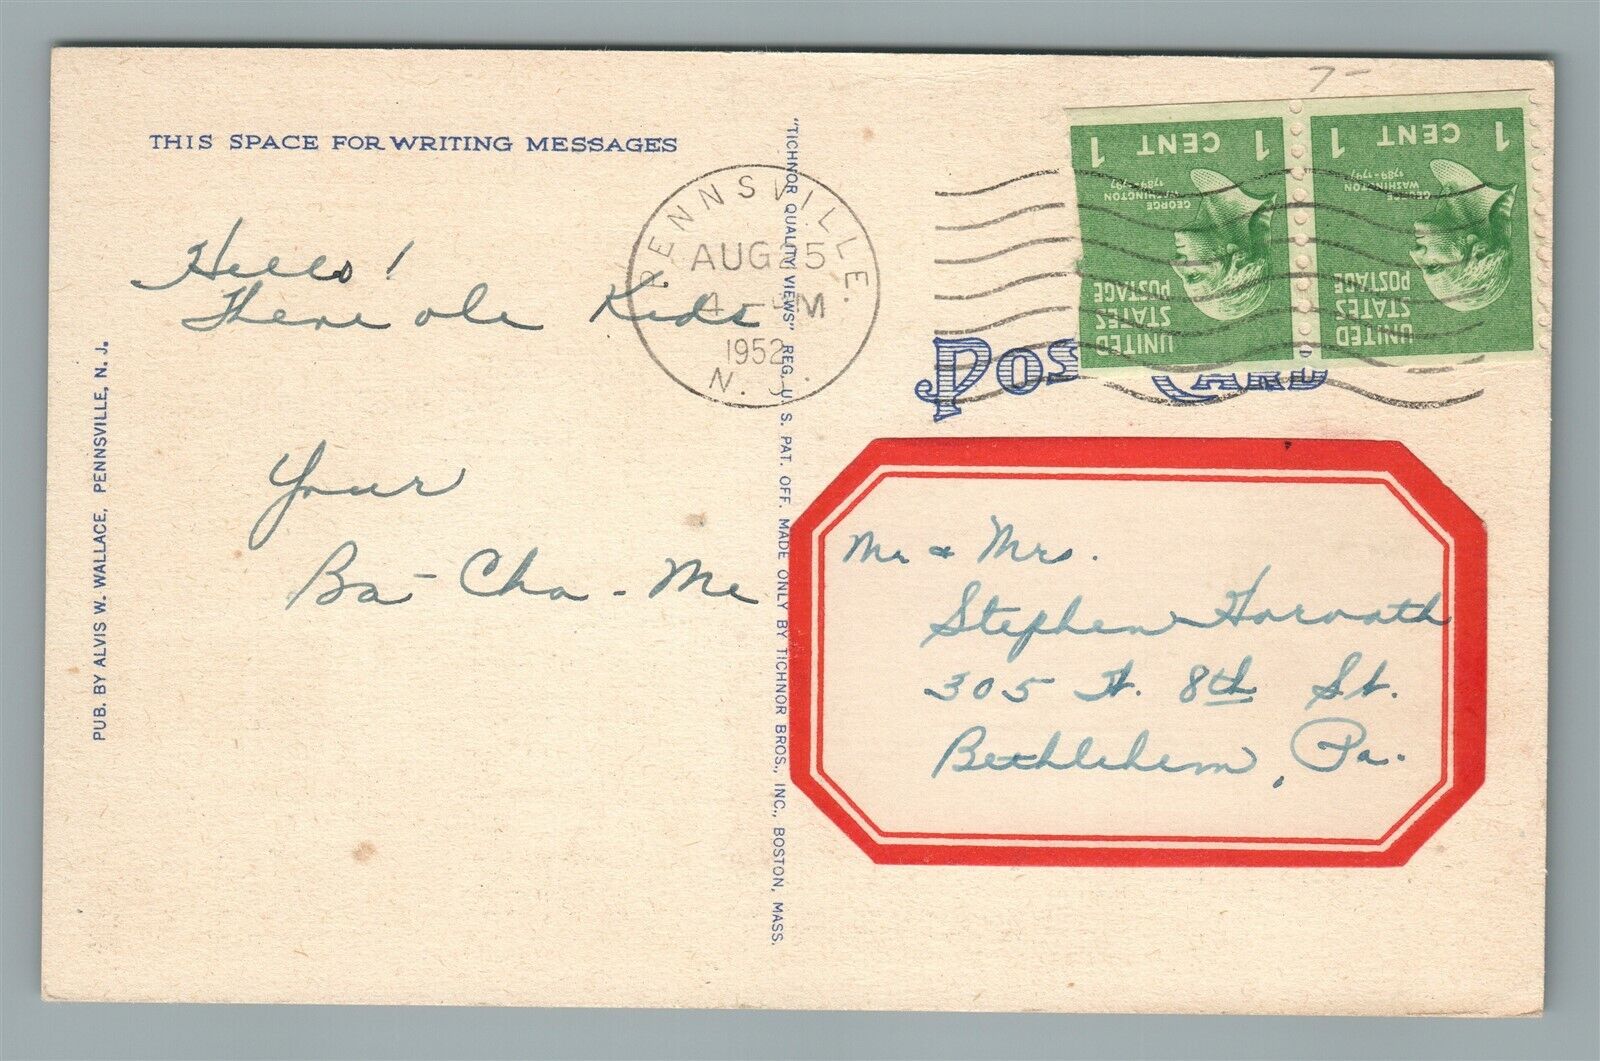 7-
THIS SPACE FOR WRITING MESSAGES
Hello!
There ole Kids
Your
Ba-Cha-Me
PUB. BY ALVIS W. WALLACE, PENNSVILLE, N. J.
PENNSVILLE.
AUG 25
4 - PM
1952
N. J.
"TICHNOR QUALITY VIEWS" REG. U. S. PAT. OFF. MADE ONLY BY TICHNOR BROS., INC., BOSTON, MASS.
1 CENT 1
GEORGE
WASHINGTON
1789-1797
UNITED
STATES
POSTAGE
1 CENT 1
GEORGE
WASHINGTON
1789-1797
UNITED
STATES
POSTAGE
POST CARD
Mr & Mrs.
Stephen Horvath
305 8th St.
Bethlehem, Pa.